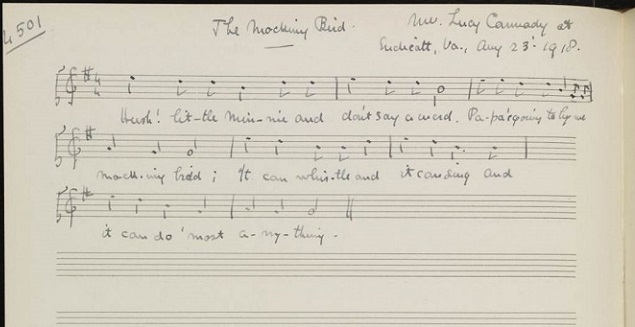 4501
The Mocking Bird. Mrs. Lucy Cannady at
Endicott, Va., Aug 23' 1918.
Hush! lit-tle Min-nie and don't say a word. Pa-pa's going to buy me
mock-ing bird; It can whis-tle and it can sing and
it can do 'most a-ny-thing.